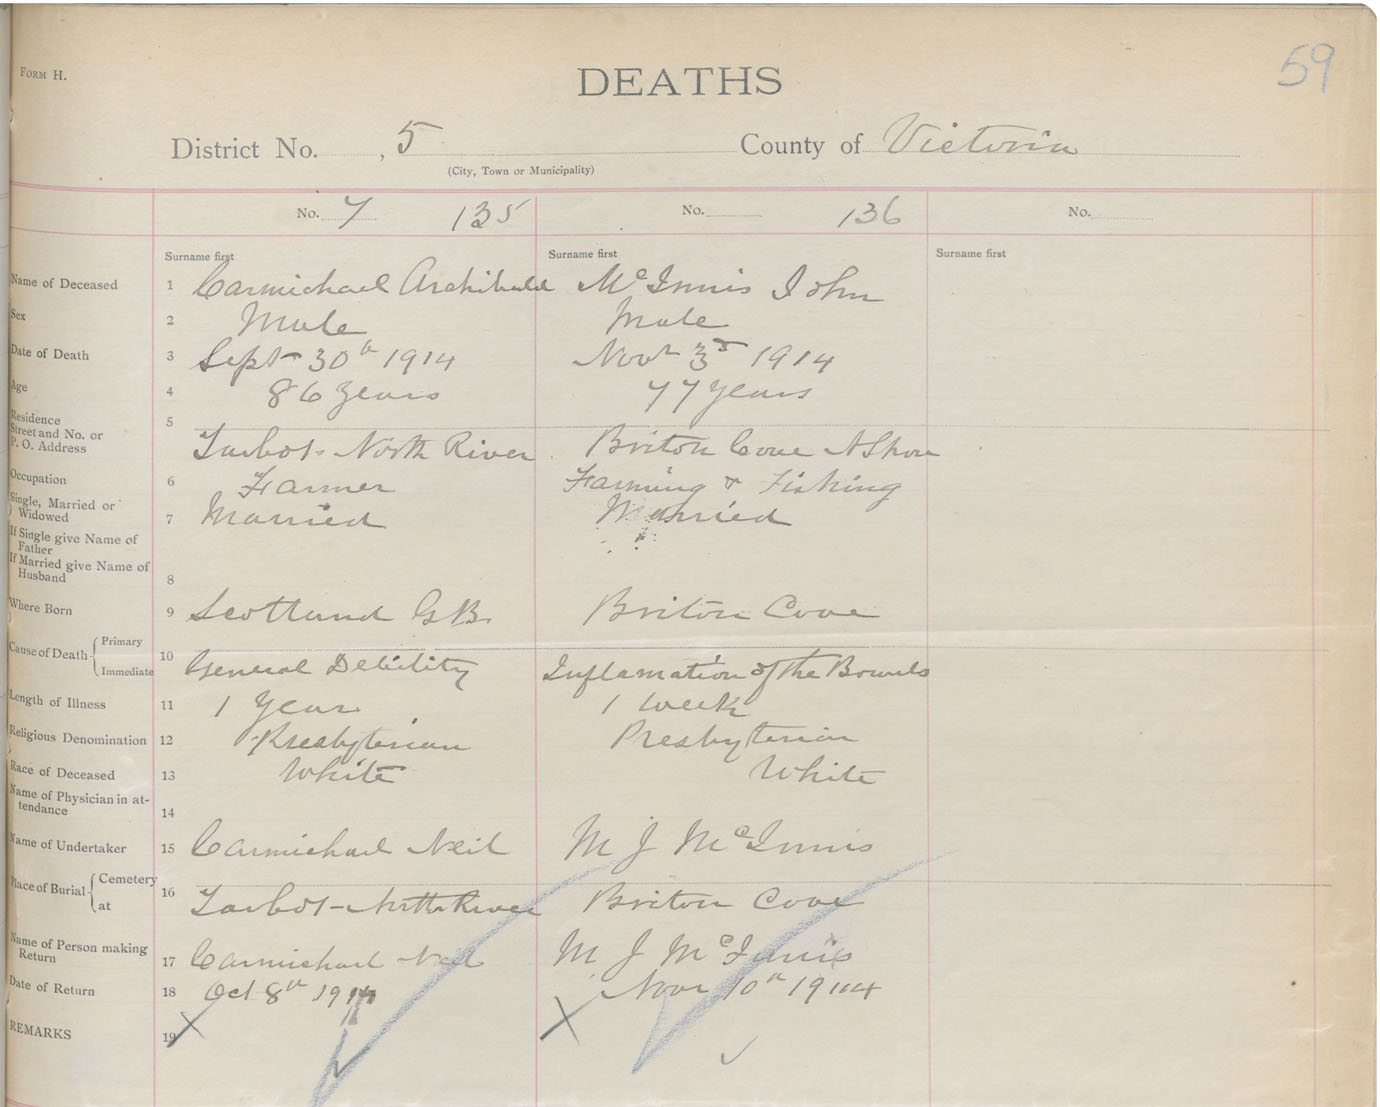 FORM H.
59
DEATHS
District No. 5 County of Victoria
(City, Town or Municipality)
No. 7 135 No. 136 No.
Surname first Surname first Surname first
Name of Deceased 1 Carmichael Archibald McInnis John
Sex 2 Male Male
Date of Death 3 Sept 30th 1914 Nov 3rd 1914
Age 4 86 years 77 years
Residence 5
Street and No. or
P. O. Address Tarbot - North River Briton Cove N Shore
Occupation 6 Farmer Farming & Fishing
Single, Married or
Widowed 7 Married Married
If Single give Name of
Father
If Married give Name of
Husband 8
Where Born 9 Scotland G B. Briton Cove
Cause of Death Primary 10
Immediate General Debility Inflamation of the Bowels
Length of Illness 11 1 Year 1 Week
Religious Denomination 12 Presbyterian Presbyterian
Race of Deceased 13 White White
Name of Physician in at-
tendance 14
Name of Undertaker 15 Carmichael Neil M J McInnis
Place of Burial Cemetery 16
at Tarbot - North River Briton Cove
Name of Person making
Return 17 Carmichael Neil M J McInnis
Date of Return 18 Oct 8th 1914 Nov 10th 1914
REMARKS 19